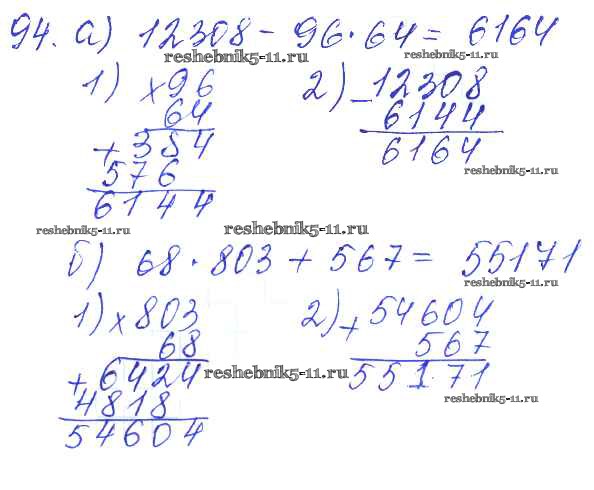 94. а) 12308 - 96·64 = 6164
reshebnik5-11.ru reshebnik5-11.ru
1) ×96 2) -12308
64 6144
+384 6164
576 reshebnik5-11.ru
6144
reshebnik5-11.ru reshebnik5-11.ru
б) 68·803 + 567 = 55171
reshebnik5-11.ru
1) ×803 2) +54604
68 567
+6424 reshebnik5-11.ru 55171
4818 reshebnik5-11.ru
54604